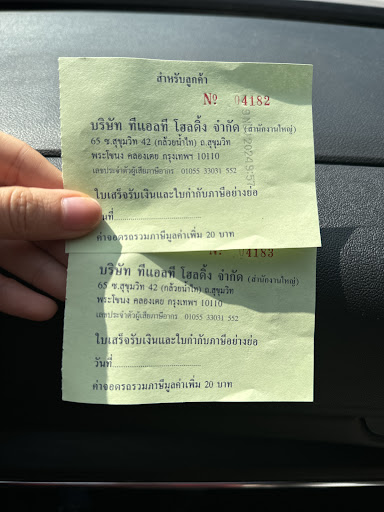 สำหรับลูกค้า
Nº 04182
บริษัท ทีแอลที โฮลดิ้ง จำกัด (สำนักงานใหญ่)
65 ซ.สุขุมวิท 42 (กล้วยน้ำไท) ถ.สุขุมวิท
พระโขนง คลองเตย กรุงเทพฯ 10110
เลขประจำตัวผู้เสียภาษีอากร 01055 33031 552
ใบเสร็จรับเงินและใบกำกับภาษีอย่างย่อ
วันที่
ค่าจอดรถรวมภาษีมูลค่าเพิ่ม 20 บาท
Nº 04183
บริษัท ทีแอลที โฮลดิ้ง จำกัด (สำนักงานใหญ่)
65 ซ.สุขุมวิท 42 (กล้วยน้ำไท) ถ.สุขุมวิท
พระโขนง คลองเตย กรุงเทพฯ 10110
เลขประจำตัวผู้เสียภาษีอากร 01055 33031 552
ใบเสร็จรับเงินและใบกำกับภาษีอย่างย่อ
วันที่
ค่าจอดรถรวมภาษีมูลค่าเพิ่ม 20 บาท